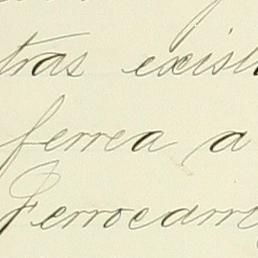 tras exist
ferrea a
Ferrocarri